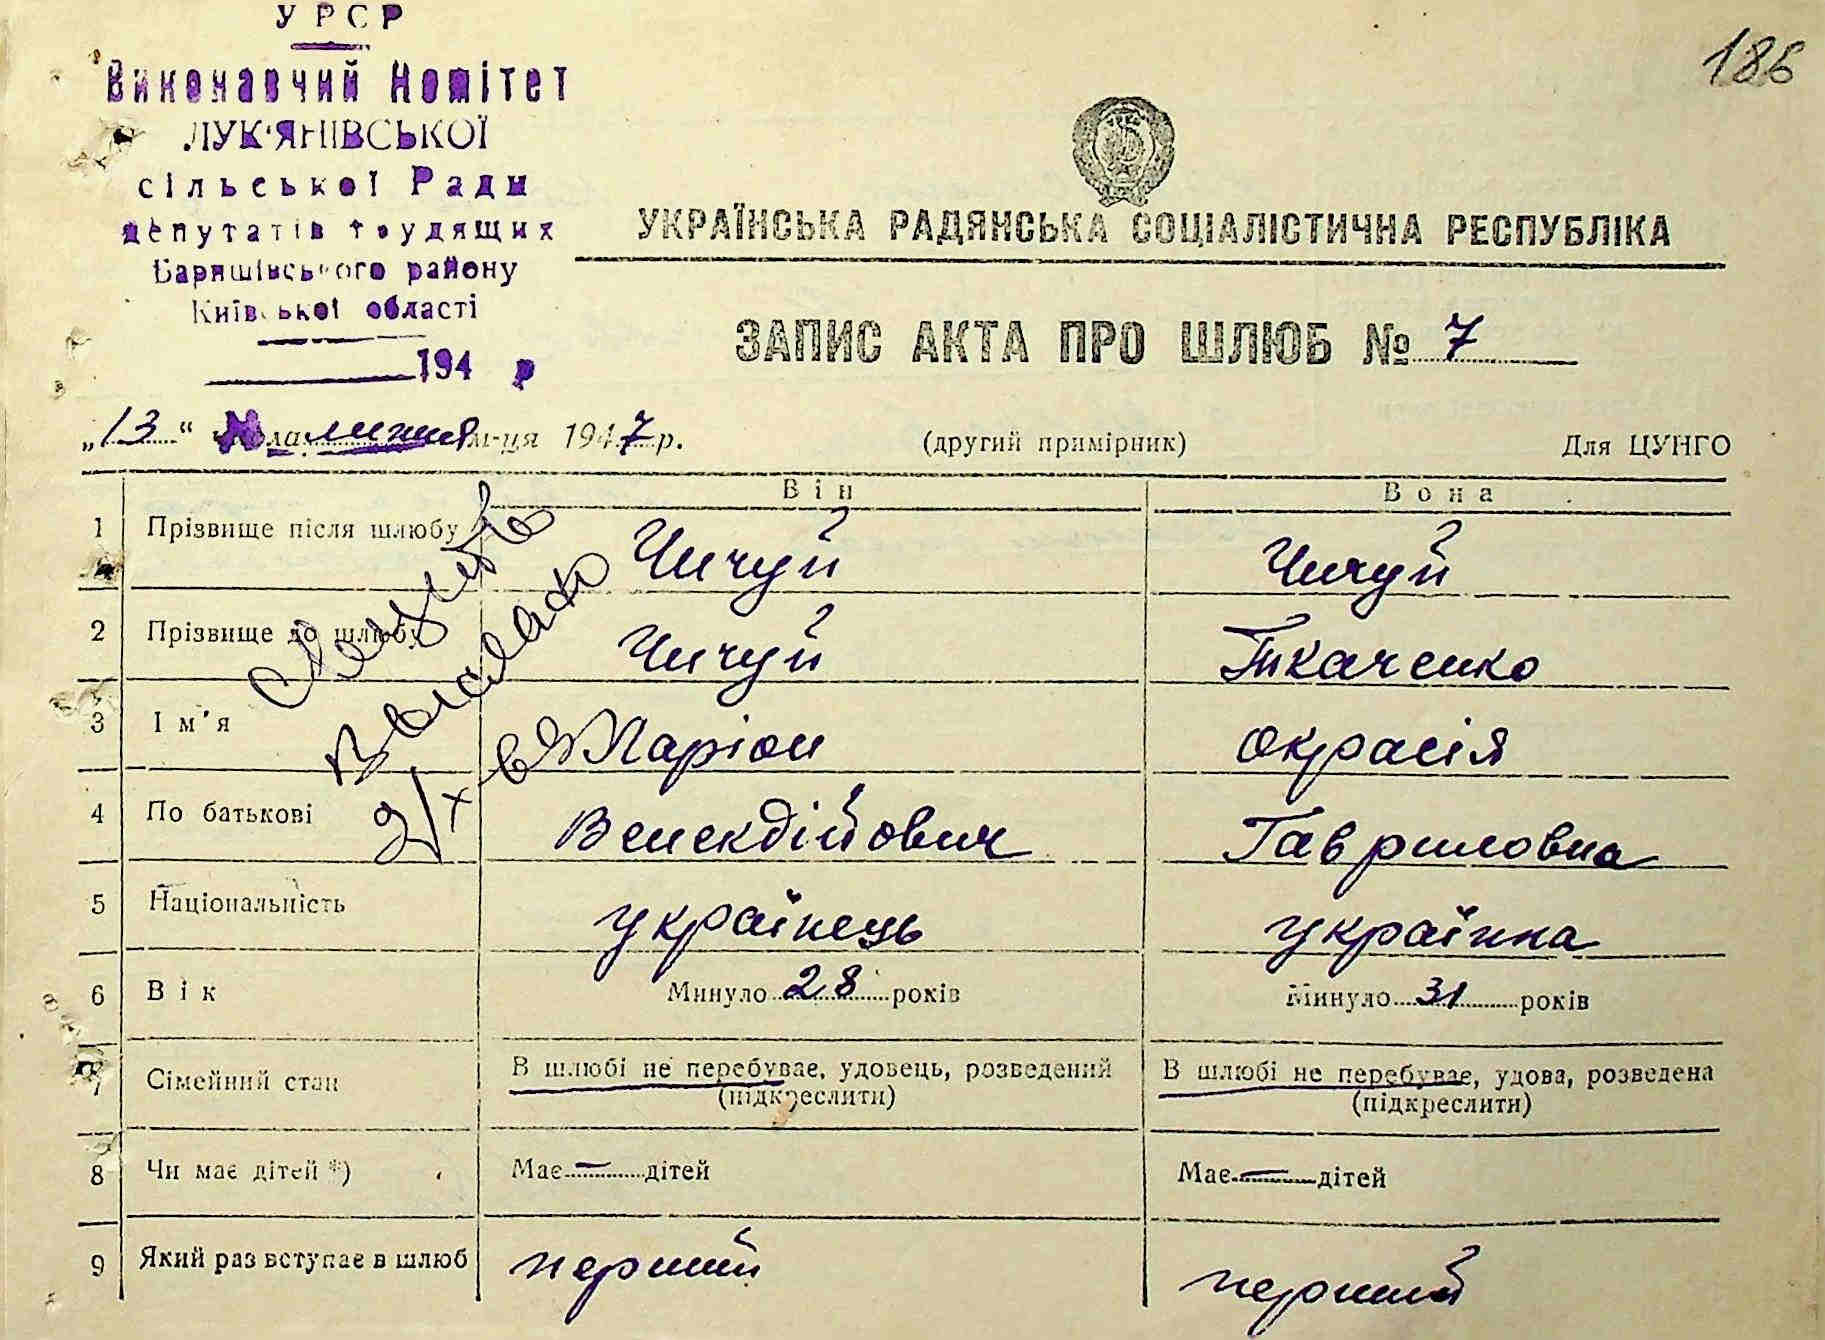 УРСР
Виконавчий Комітет
ЛУК'ЯНІВСЬКОЇ
сільської Ради
депутатів трудящих
Баришівського району
Київської області
194 р
186
УКРАЇНСЬКА РАДЯНСЬКА СОЦІАЛІСТИЧНА РЕСПУБЛІКА
ЗАПИС АКТА ПРО ШЛЮБ № 7
„13“ липня м-ця 1947 р.
(другий примірник)
Для ЦУНГО
Він Вона
1 Прізвище після шлюбу Чичуй Чичуй
2 Прізвище до шлюбу Чичуй Ткаченко
3 Ім'я Ларіон Окрасія
4 По батькові Венекдійович Гавриловна
5 Національність українець українка
6 Вік Минуло 28 років Минуло 31 років
7 Сімейний стан В шлюбі не перебуває, удовець, розведений (підкреслити) В шлюбі не перебуває, удова, розведена (підкреслити)
8 Чи має дітей *) Має — дітей Має — дітей
9 Який раз вступає в шлюб перший перший